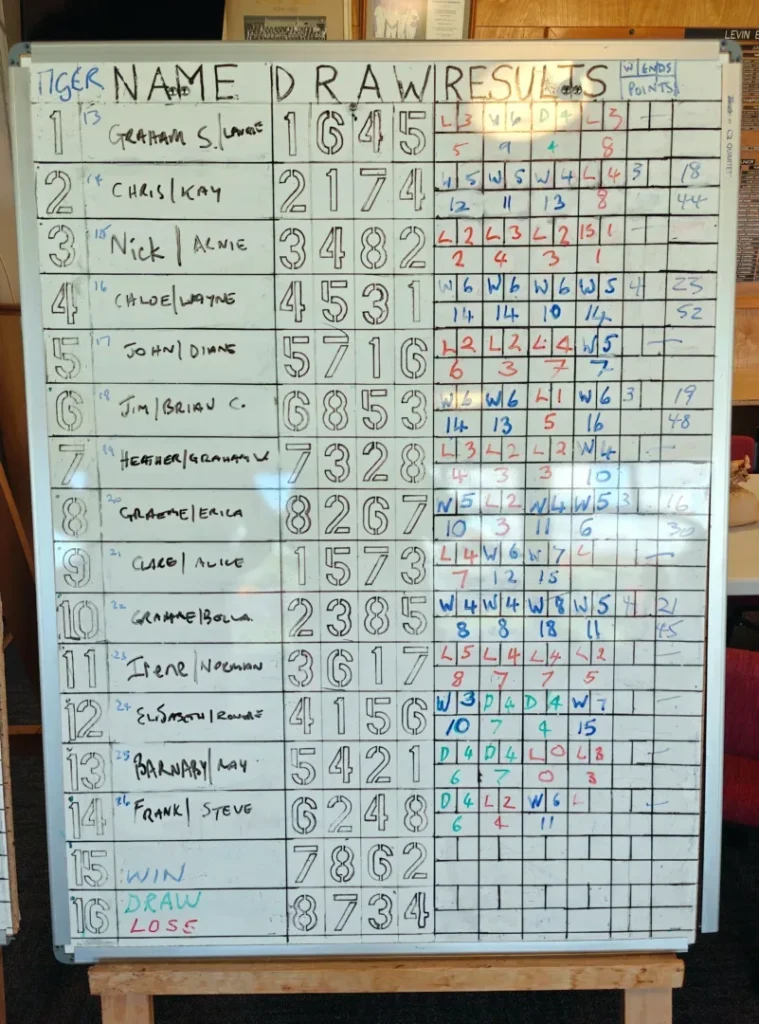 TIGER NAME DRAW RESULTS W ENDS
POINTS
LEVIN
1 13 GRAHAM S./ 1 6 4 5 L 3 W 6 D 4 L 3 -
5 9 4 8
2 14 CHRIS/KAY 2 1 7 4 W 5 W 5 W 4 L 4 3 18
12 11 13 8 44
3 15 Nick/ARNIE 3 4 8 2 L 2 L 3 L 2 1 -
2 4 3 1
4 16 CHLOE/WAYNE 4 5 3 1 W 6 W 6 W 6 W 5 4 23
14 14 10 14 52
5 17 JOHN/DIANE 5 7 1 6 L 2 L 2 L 4 W 5 -
6 3 7 7
6 18 JIM/BRIAN C. 6 8 5 3 W 6 W 6 L 1 W 6 3 19
14 13 5 16 48
7 19 HEATHER/GRAHAM W 7 3 2 8 L 3 L 2 L 2 W 4 -
4 3 3 10
8 20 GRAEME/ERICA 8 2 6 7 W 5 L 2 W 4 W 5 3 16
10 3 11 6 30
9 21 CLARE/ALICE 1 5 7 3 L 4 W 6 W 7 L -
7 12 15
10 22 GRAHAME/BOLLA. 2 3 8 5 W 4 W 4 W 8 W 5 4 21
8 8 18 11 45
11 23 Irene/NORMAN 3 6 1 7 L 5 L 4 L 4 L 2 -
8 7 7 5
12 24 ELISABETH/ 4 1 5 6 W 3 D 4 D 4 W 7 -
10 7 4 15
13 25 BARNABY/RAY 5 4 2 1 D 4 D 4 L 0 L 3 -
6 7 0 3
14 26 FRANK/STEVE 6 2 4 8 D 4 L 2 W 6 L -
6 4 11
15 WIN 7 8 6 2
16 DRAW 8 7 3 4
LOSE